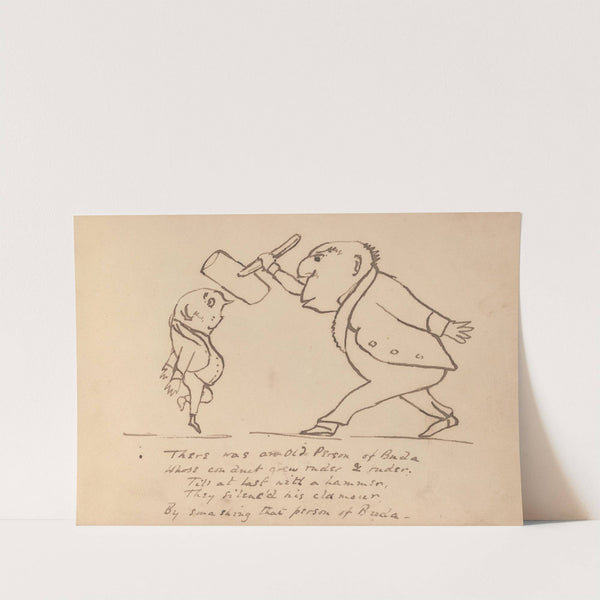 There was an Old Person of Buda
Whose conduct grew ruder & ruder,
Till at last with a hammer,
They silenc'd his clamour,
By smashing that person of Buda –